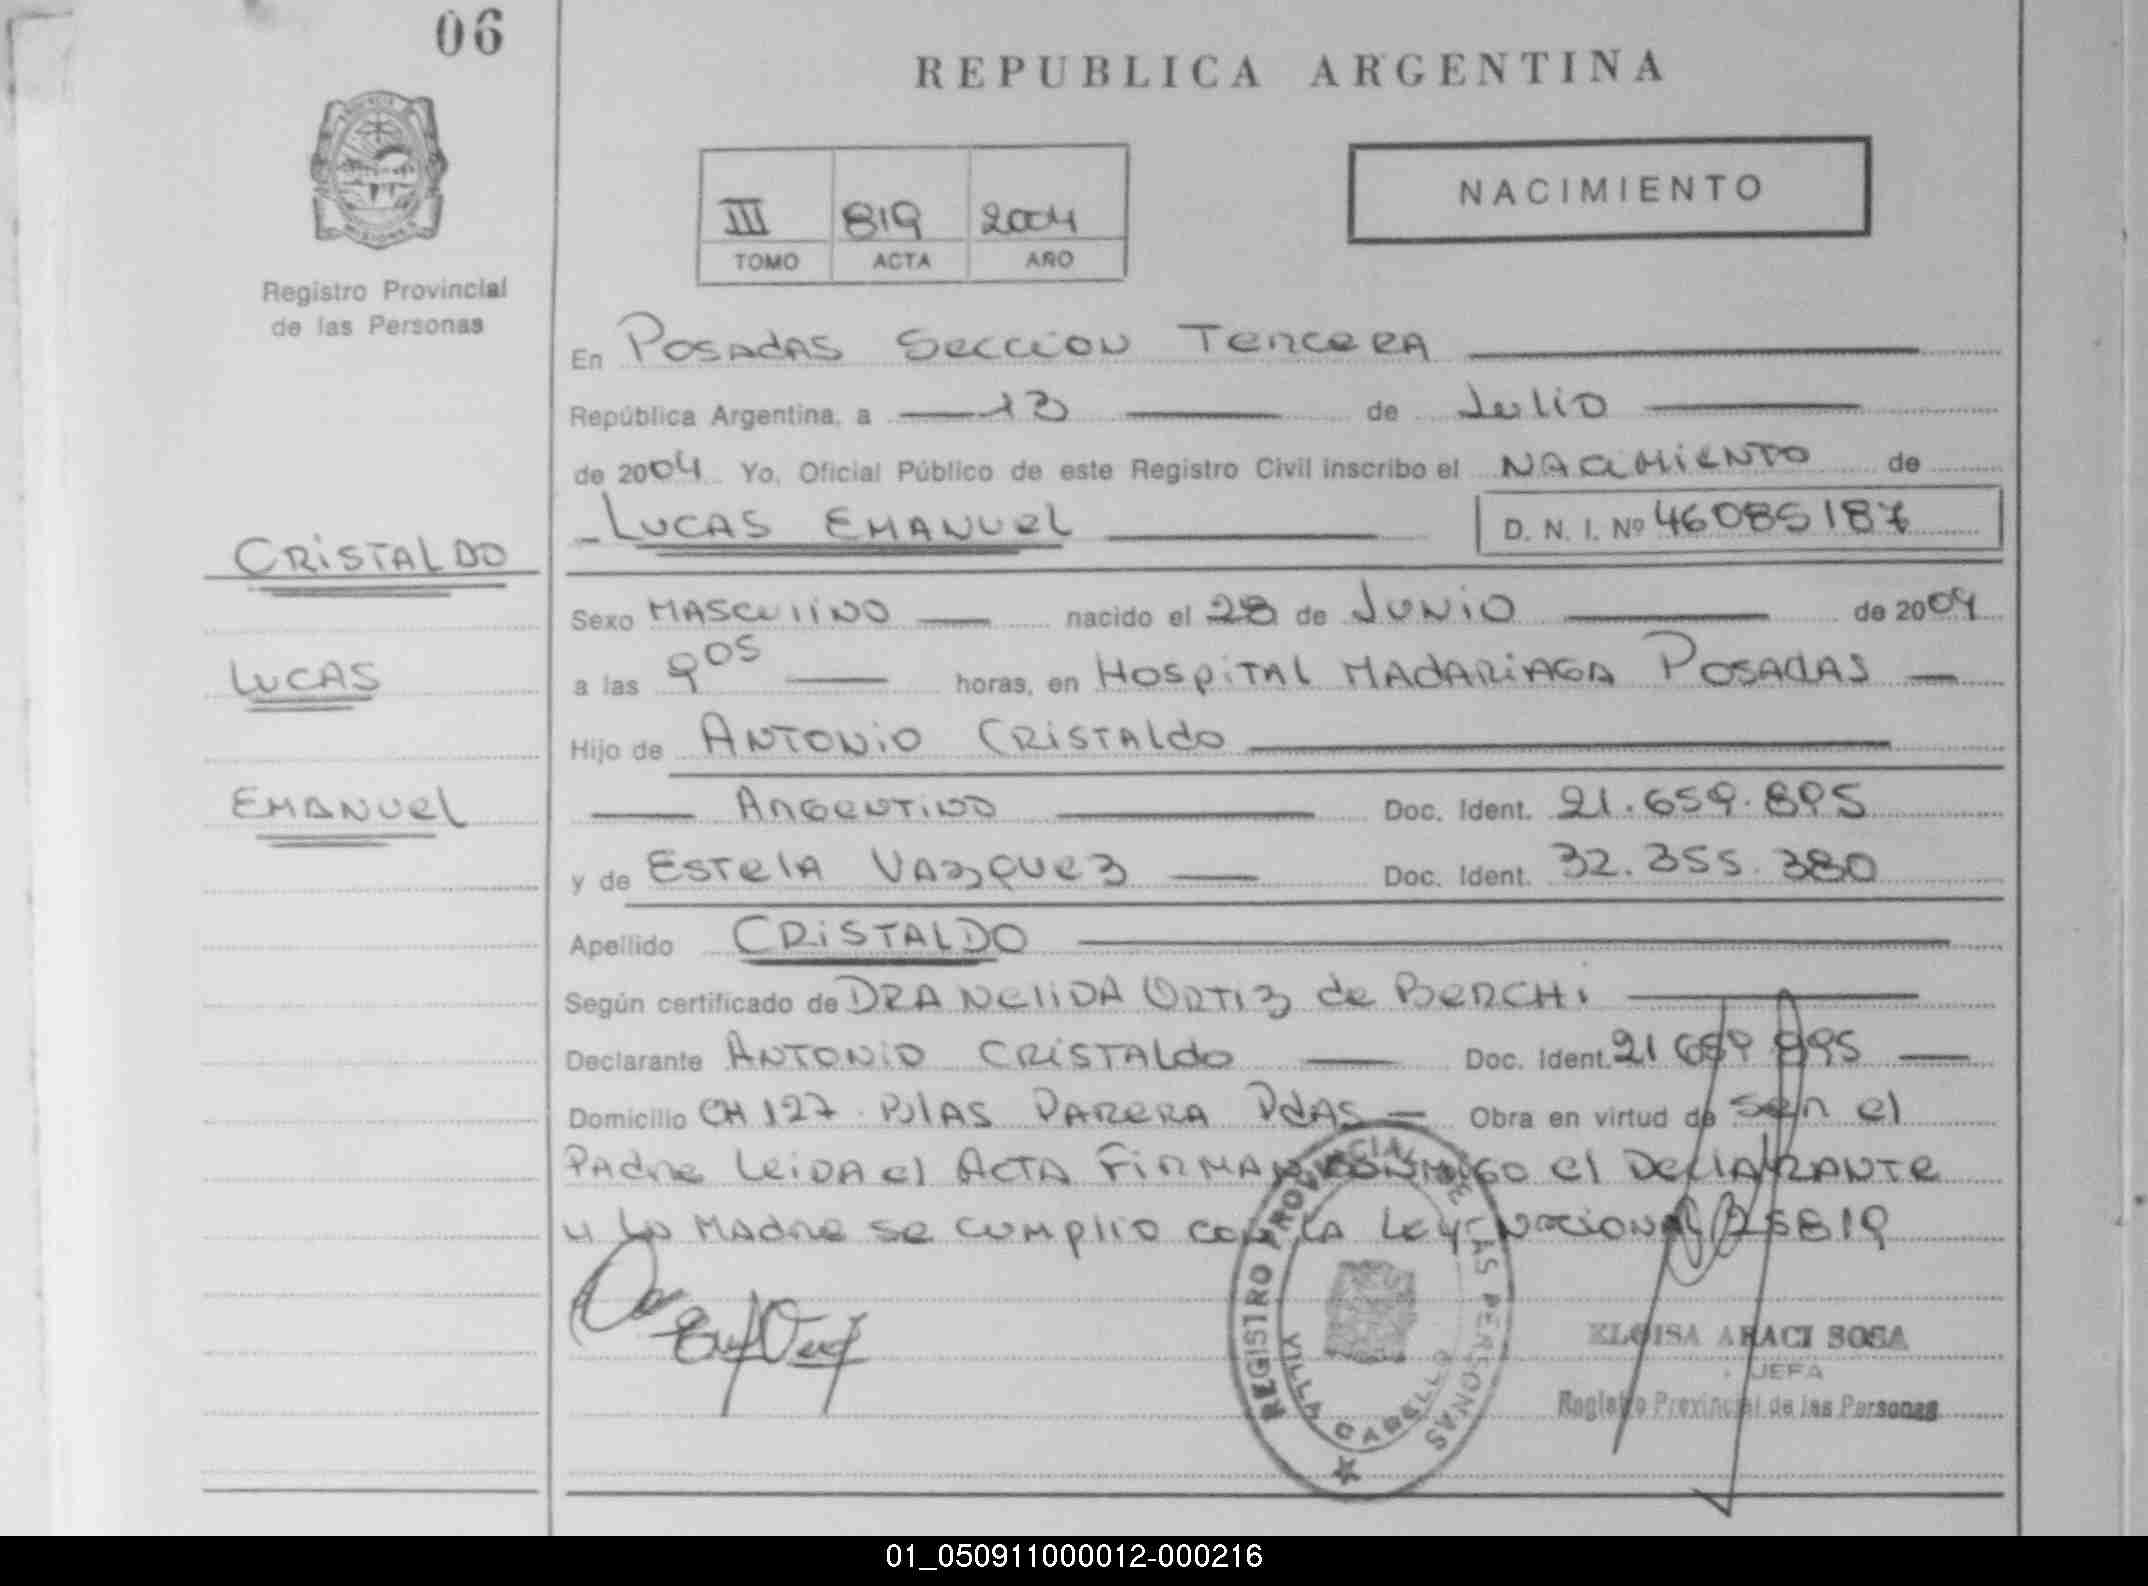 06
REPUBLICA ARGENTINA
NACIMIENTO
III 819 2004
TOMO ACTA AÑO
MISIONES
Registro Provincial
de las Personas
En POSADAS SECCION TERCERA
República Argentina, a 13 de Julio
de 2004 Yo, Oficial Público de este Registro Civil inscribo el NACIMIENTO de
LUCAS EMANUEL D. N. I. Nº 46085187
CRISTALDO
Sexo MASCULINO nacido el 28 de JUNIO de 2004
LUCAS
a las 9 05 horas, en HOSPITAL MADARIAGA POSADAS
Hijo de ANTONIO CRISTALDO
EMANUEL
ARGENTINO Doc. Ident. 21.659.895
y de ESTELA VAZQUEZ Doc. Ident. 32.355.380
Apellido CRISTALDO
Según certificado de DRA NELIDA ORTIZ de BERCHI
Declarante ANTONIO CRISTALDO Doc. Ident. 21 659 895
Domicilio CH 127 BLAS PARERA PdAS Obra en virtud de ser el
PADRE LEIDA el ACTA FIRMAN CONMIGO el DECLARANTE
y la MADRE se CUMPLIO CON LA LEY NACIONAL 25819
REGISTRO PROVINCIAL DE LAS PERSONAS
VILLA CABELLO
ELOISA ARACI SOSA
JEFA
Registro Provincial de las Personas
01_050911000012-000216